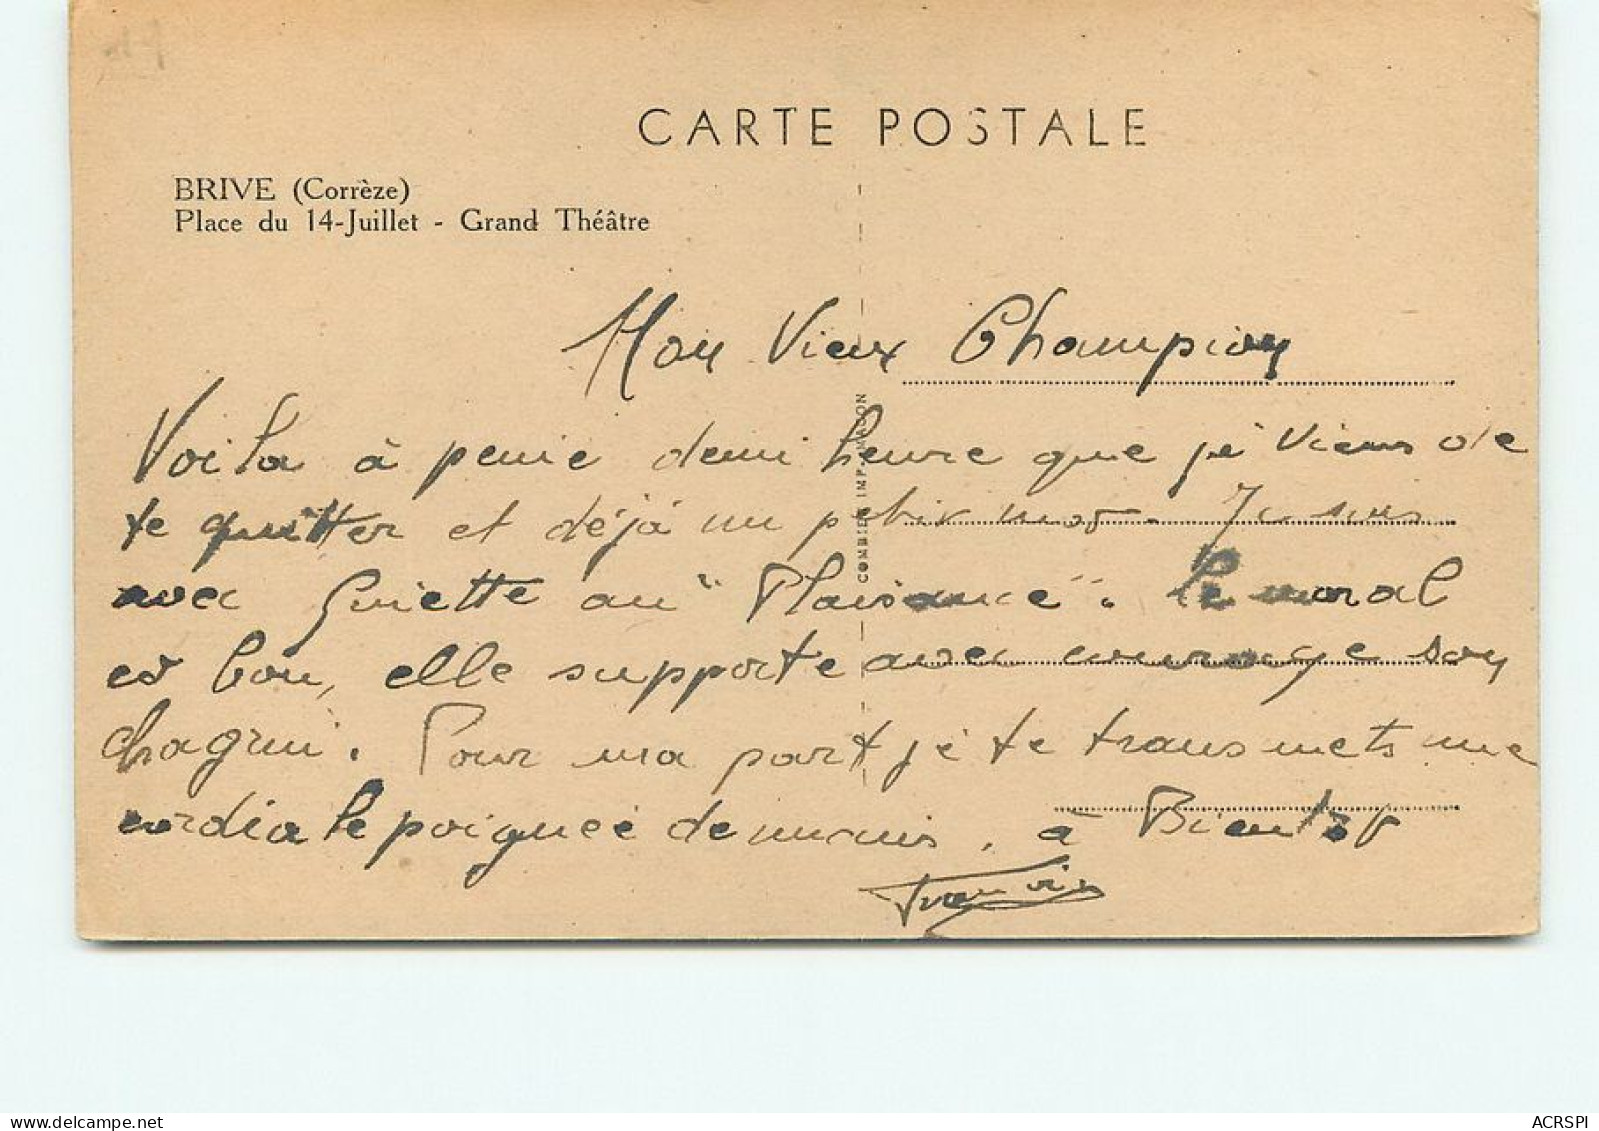 CARTE POSTALE
BRIVE (Corrèze)
Place du 14-Juillet - Grand Théâtre
COMBIER IMP. MACON
Mon Vieux Champion
Voila à peine demi heure que je viens de
te quitter et déjà un petit mot. Je suis
avec Guiette au "Plaisance". Le moral
est bon, elle supporte avec courage son
chagrin. Pour ma part je te transmets une
cordiale poignée de mains. à Bientot
www.delcampe.net
ACRSPI